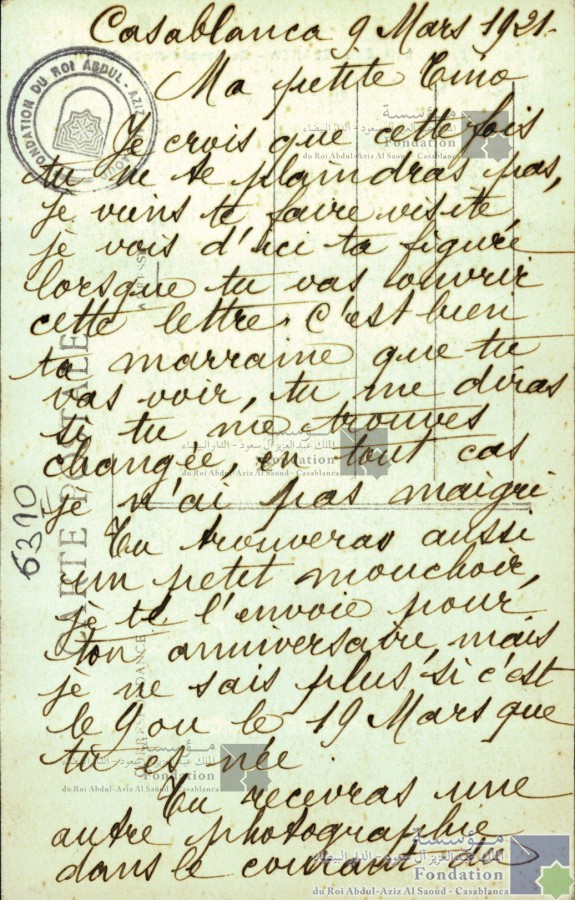 Casablanca 9 Mars 1921.
Ma petite Tino
Je crois que cette fois
tu ne te plaindras pas,
je viens te faire visite,
je vois d'ici ta figure
lorsque tu vas ouvrir
cette lettre. C'est bien
ta marraine que tu
vas voir, tu me diras
si tu me trouves
changée, en tout cas
je n'ai pas maigri
Tu trouveras aussi
un petit mouchoir,
je te l'envoie pour
ton anniversaire, mais
je ne sais plus si c'est
le 9 ou le 19 Mars que
tu es née.
Tu recevras une
autre photographie
dans le courant
6310
CARTE POSTALE
CORRESPONDANCE
FONDATION DU ROI ABDUL-AZIZ
مؤسسة
الملك عبدالعزيز آل سعود - الدار البيضاء
Fondation
du Roi Abdul-Aziz Al Saoud - Casablanca
مؤسسة
الملك عبدالعزيز آل سعود - الدار البيضاء
Fondation
du Roi Abdul-Aziz Al Saoud - Casablanca
مؤسسة
الملك عبدالعزيز آل سعود - الدار البيضاء
Fondation
du Roi Abdul-Aziz Al Saoud - Casablanca
مؤسسة
الملك عبدالعزيز آل سعود - الدار البيضاء
Fondation
du Roi Abdul-Aziz Al Saoud - Casablanca